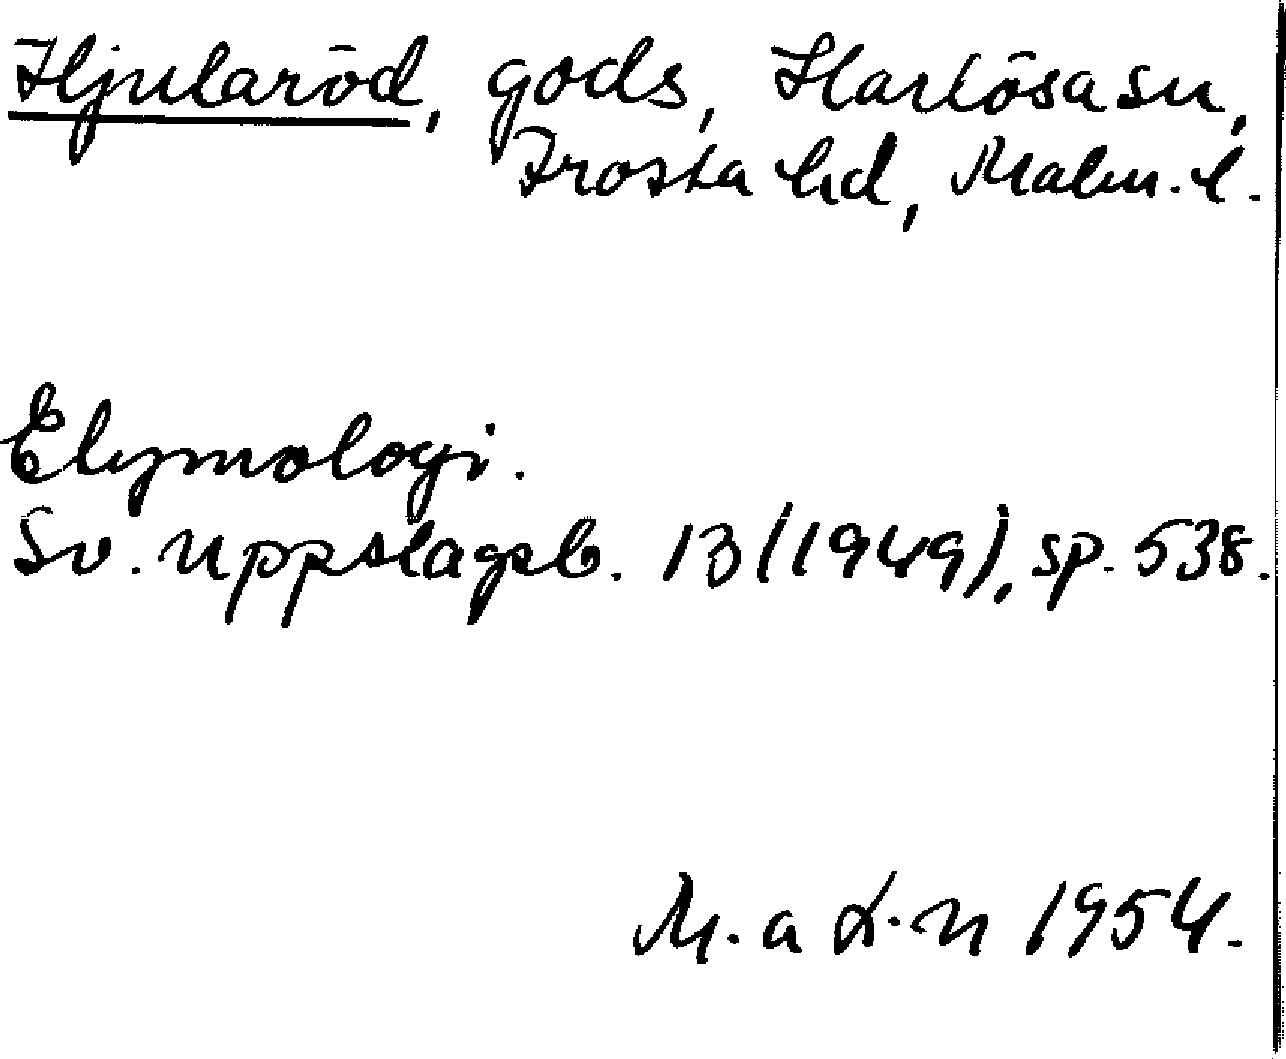 Hjularöd, gods, Harlösa sn,
Frosta hd, Malm. l.
Etymologi.
Sv. uppslagsb. 13 (1949), sp. 538.
M. a 1954.